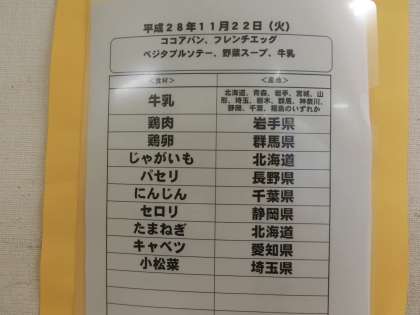 平成28年11月22日（火）
ココアパン、フレンチエッグ
ベジタブルソテー、野菜スープ、牛乳
＜食材＞ ＜産地＞
牛乳 北海道、青森、岩手、宮城、山
形、埼玉、栃木、群馬、神奈川、
静岡、千葉、福島のいずれか
鶏肉 岩手県
鶏卵 群馬県
じゃがいも 北海道
パセリ 長野県
にんじん 千葉県
セロリ 静岡県
たまねぎ 北海道
キャベツ 愛知県
小松菜 埼玉県